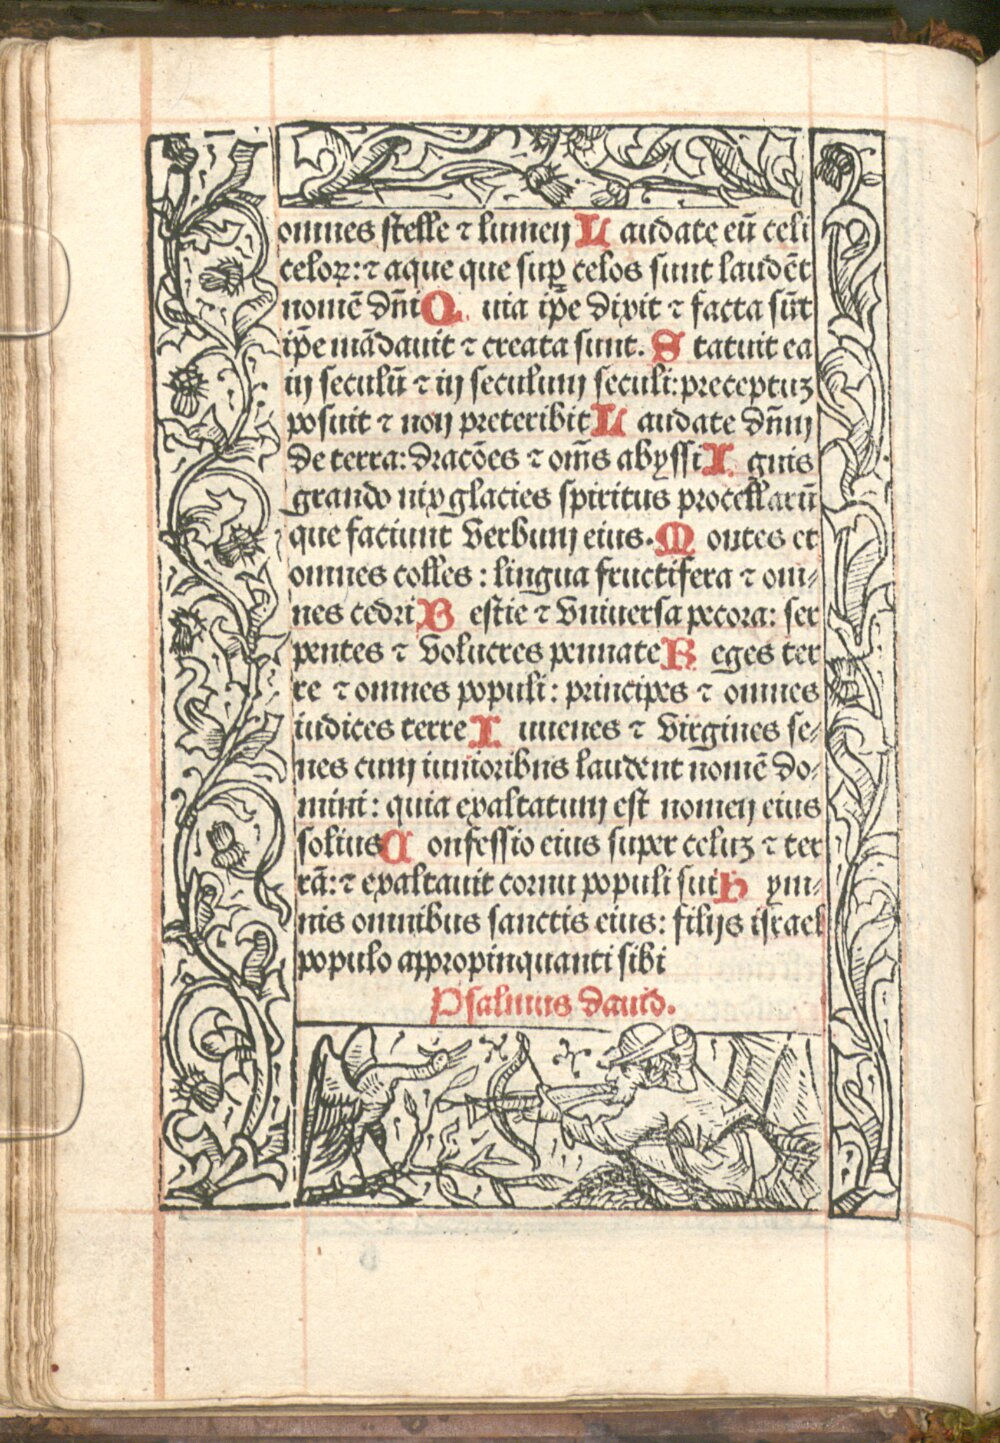 omnes stelle ⁊ lumen Laudate eū celi
celoꝝ: ⁊ aque que sup̲ celos sunt laudēt
nomē dn̄i Quia ip̄e dixit ⁊ facta sūt
ip̄e mādauit ⁊ creata sunt. Statuit ea
in seculū ⁊ in seculum seculi: preceptuꝫ
posuit ⁊ non preteribit Laudate dn̄m
de terra: dracōes ⁊ om̄s abyssi Ignis
grando nix glacies spiritus procellarū
que faciunt verbum eius. Montes et
omnes colles: lingua fructifera ⁊ om-
nes cedri Bestie ⁊ vniuersa pecora: ser
pentes ⁊ volucres pennate Reges ter
re ⁊ omnes populi: principes ⁊ omnes
iudices terre Iuuenes ⁊ virgines se-
nes cum iunioribus laudent nomē do-
mini: quia exaltatum est nomen eius
solius Confessio eius super celuꝫ ⁊ ter
rā: ⁊ exaltauit cornu populi sui Hym-
nis omnibus sanctis eius: filijs israel
populo appropinquanti sibi
Psalmus dauid.